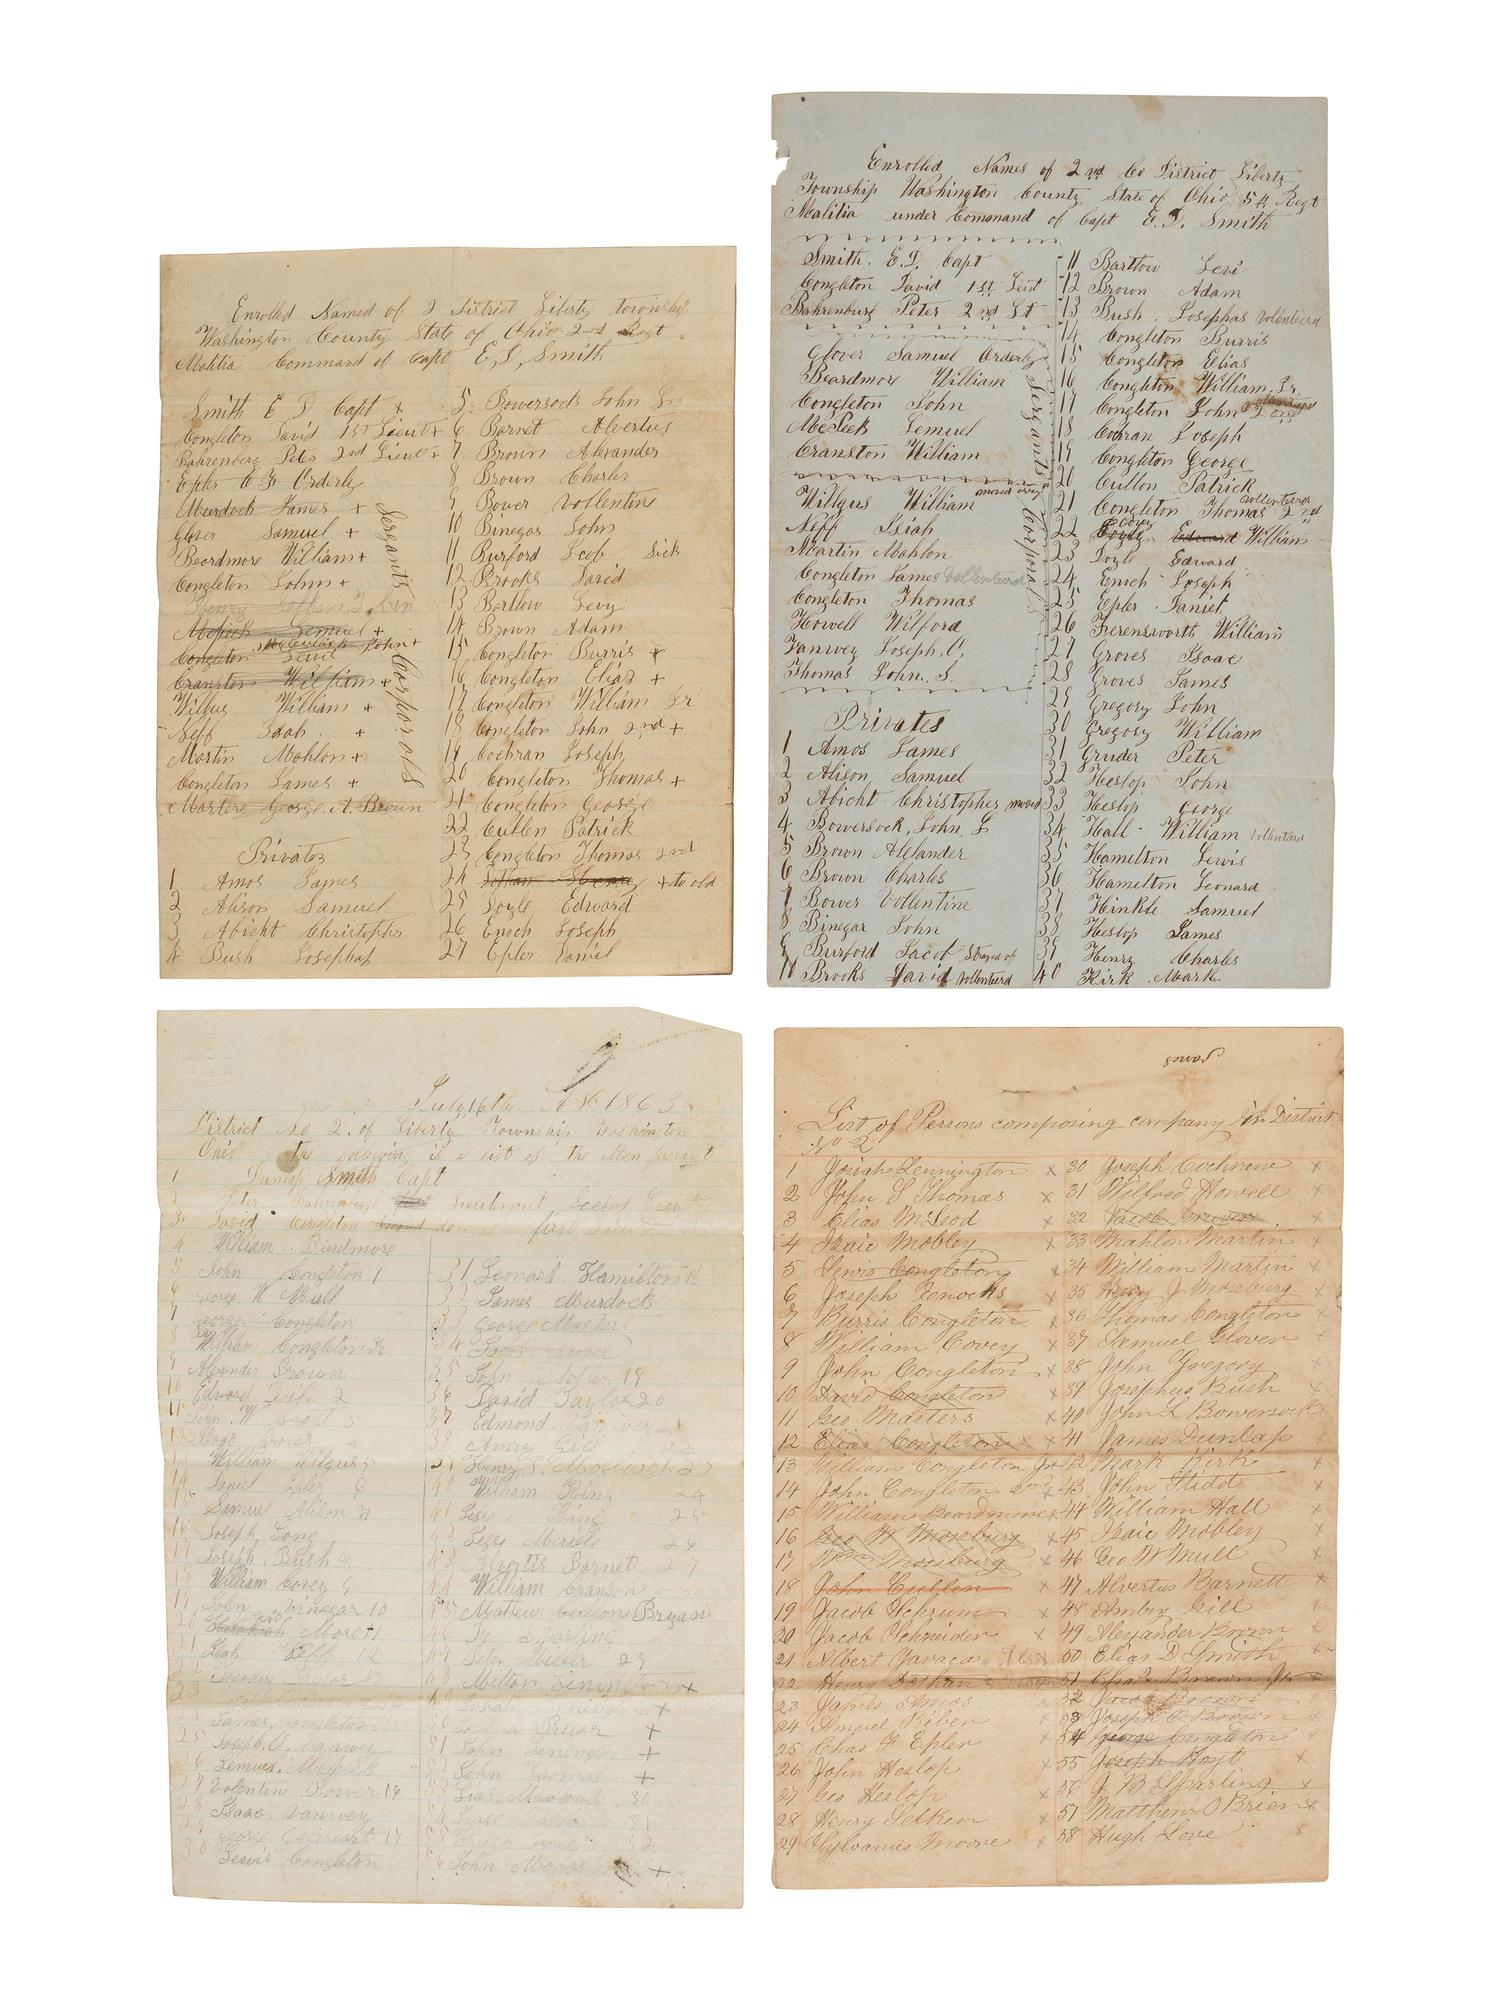 Enrolled Named of 2 District Liberty township
Washington County State of Ohio 2nd Regt
Malitia Command of Capt E, D, Smith
Smith E D Capt x
Congleton David 1st Lieut +
Bahrenberg Peter 2nd Lieut +
Epler C F Orderly
Murdock James +
Glover Samuel +
Beardmore William +
Congleton John +
Sergants
Mcpeck Lemuel +
Congleton Lewis John +
Cranston William +
Wilgus William +
Neff Isaah +
Martin Mahlon +
Congleton James +
Masters George. A. Brown
Corporals
Privates
1 Amos James
2 Alison Samuel
3 Abicht Christopher
4 Bush Josephas
5. Bowersock John L
6 Barnet Alvertus
7 Brown Alexander
8 Brown Charles
9 Bower Vollentine
10 Binegar John
11 Burford Jacob Sick
12 Brooks David
13 Bartlow Levy
14 Brown Adam
15 Congleton Burris +
16 Congleton Elias +
17 Congleton William Jr
18 Congleton John 2nd +
19 Cochran Joseph
20 Congleton Thomas +
21 Congleton George
22 Cullen Patrick
23 Congleton Thomas 2nd
24 Henry + to old
25 Doyle Edward
26 Enoch Joseph
27 Epler Daniel
Enrolled Names of 2nd Co District Liberty
Township Washington County State of Ohio 5th Regt
Malitia under Command of Capt E. D. Smith
Smith. E. D. Capt
Congleton David 1st Leiut
Bahrenburg Peter 2nd Lt
Glover Samuel Orderly
Beardmore William
Congleton John
McPeek Lemuel
Cranston William
Sergants
Willgus William moved over
Neff Isiah
Martin Mahlon
Congleton James Vollenteerd
Congleton Thomas
Howell Wilford
Vanwey Joseph, O.
Thomas John, S.
Corporals
Privates
1 Amos James
2 Alison, Samuel
3 Abicht Christopher moved
4 Bowersock, John, L
5 Brown Alexander
6 Brown Charles
7 Bower Vollentine
8 Binegar John
9 Burford Jacob
10 Brooks David Vollenteerd
11 Bartlow Levi
12 Brown Adam
13 Bush. Josephas Vollenteerd
14 Congleton Burris
15 Congleton Elias
16 Congleton William, Jr
17 Congleton John 2nd
18 Cochran Joseph
19 Congleton George
20 Cullon Patrick
21 Congleton Thomas 2nd Vollenteerd
22 Covey Edward William
23 Doyle Edward
24 Enich Joseph
25 Epler Daniel
26 Ferensworth William
27 Groves Isaac
28 Groves James
29 Gregory John
30 Gregory William
31 Gruder Peter
32 Heslop John
33 Heslop George
34 Hall William Vollenteerd
35 Hamelton Lewis
36 Hamelton Leonard
37 Hinkle Samuel
38 Heslop James
39 Henry Charles
40 Kirk Mark
July 16th A D 1863
District No 2. of Liberty Township Washington
Ohio the following is a list of the Men present
1 Dunlap Smith Capt
2 Peter Bahrenburg Lieutenant Second Lieut
3 David Congleton Second do first Lieut
4 William Bierdmore
5 John Congleton 1
6 George W Mull
7 George Congleton
8 William Congleton Jr
9 Alexander Brown
10 Edward 2
11 John W 3
12 Isaac Groves 4
13 William Wilgus 5
14 Daniel Epler 6
15 Samuel Alison 7
16 Joseph Long
17 Joseph Bush 8
18 William Covey 9
19 John Vinegar 10
20 More 11
21 Isah Neff 12
22 Taylor 13
23
24 James Congleton
25 Joseph. O. Vanwey
26 Lemuel Mcpeek
27 Valentine Bower 16
28 Isaac Vanwey
29 George Gearheart 17
30 Lewis Congleton
31 Leonard Hamilton 18
32 James Murdock
33 George Masters
34
35 John 19
36 David Taylor 20
37 Edmond Vanwey 21
38 Amry Gill
39 Henry J. Mosburg 23
40 William King 24
41 Jesse King 25
42 Jese Maule 26
43 Alvertis Barnet 27
44 William Cranson
45 Mathew Bryan
46 Jr Sparling
47 Peter Miller 29
48 Milton Lenington +
49 +
50 Joshua +
51 John Lenington +
52 John Thomas +
53 30
54 31
55 32
56 John +
James
List of Persons composing company in District
No 2
1 Josiah Lennington x
2 John S Thomas x
3 Elias McLeod x
4 Isaic Mobley x
5 Lewis Congleton x
6 Joseph Enocks x
7 Burris Congleton x
8 William Covey x
9 John Congleton x
10 David Congleton x
11 Geo Masters x
12 Elias Congleton x
13 William Congleton Jr
14 John Congleton 2nd
15 William Beardmore x
16 Geo W Mosburg x
17 Wm Mosburg x
18 John Cullen x
19 Jacob Schrum x
20 Jacob Schneider x
21 Albert Javaca
22 Henry Dothan
23 James Amos x
24 Amuel Biber x
25 Chas F Epler x
26 John Heslop x
27 Geo Heslop x
28 Henry Selken x
29 Sylvanus Moore x
30 Joseph Cochrane x
31 Wilfred Howell x
32 Jacob Gruver x
33 Mahlon Martin x
34 William Martin x
35 Henry J Mosburg x
36 Thomas Congleton x
37 Samuel Glover x
38 John Gregory x
39 Josephus Bush x
40 John L Bowersock x
41 James Dunlap x
42 Mark Kirk x
43 John Stidd x
44 William Hall x
45 Isaic Mobley x
46 Geo W Mull x
47 Alvertus Barnett x
48 Ambry Gill x
49 Alexander Brown x
50 Elias D Smith x
51 Chas Brown Jr x
52 Jacob Brown x
53 Joseph C Brown x
54 George Congleton x
55 Joseph Hoyt x
56 J B Sparling x
57 Matthew O Brien x
58 Hugh Love x